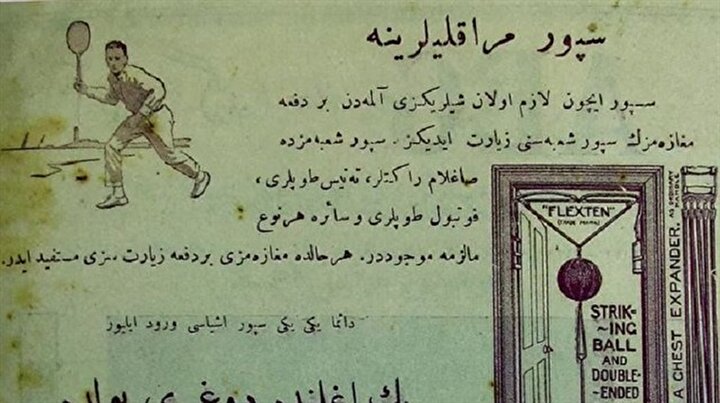 سپور مراقلیلرینه
سپور ایچون لازم اولان شیلریکزی آلمه‌دن بر دفعه
مغازه‌مزك سپور شعبه‌سنی زیارت ایدیكز. سپور شعبه‌مزده
صاغلام راكتلر، ته‌نیس طوپلری،
فوتبول طوپلری و سائره هر نوع
مالزمه موجوددر. هر حالده مغازه‌مزی بر دفعه زیارت سزی مستفید ایدر.
دائما یكی یكی سپور اشیاسی ورود ایلیور
"FLEXTEN"
(TRADE MARK)
STRIK-
~ING
BALL
AND
DOUBLE-
~ENDED
A CHEST EXPANDER.
AS ORDINARY